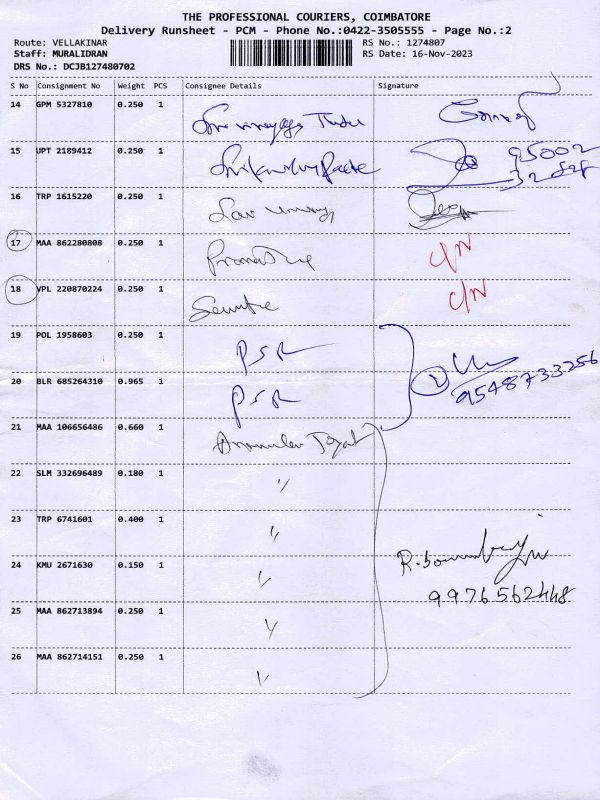 THE PROFESSIONAL COURIERS, COIMBATORE
Delivery Runsheet - PCM - Phone No.:0422-3505555 - Page No.:2
Route: VELLAKINAR RS No.: 1274807
Staff: MURALIDRAN RS Date: 16-Nov-2023
DRS No.: DCJB127480702
S No Consignment No Weight PCS Consignee Details Signature
14 GPM 5327810 0.250 1
15 UPT 2189412 0.250 1 95002
16 TRP 1615220 0.250 1
17 MAA 862280808 0.250 1 C/N
18 VPL 220870224 0.250 1 C/N
19 POL 1958603 0.250 1 PSR
20 BLR 685264310 0.965 1 PSR 9548733256
21 MAA 106656486 0.660 1
22 SLM 332696489 0.180 1 "
23 TRP 6741601 0.400 1 "
24 KMU 2671630 0.150 1 "
9976562448
25 MAA 862713894 0.250 1 "
26 MAA 862714151 0.250 1 "